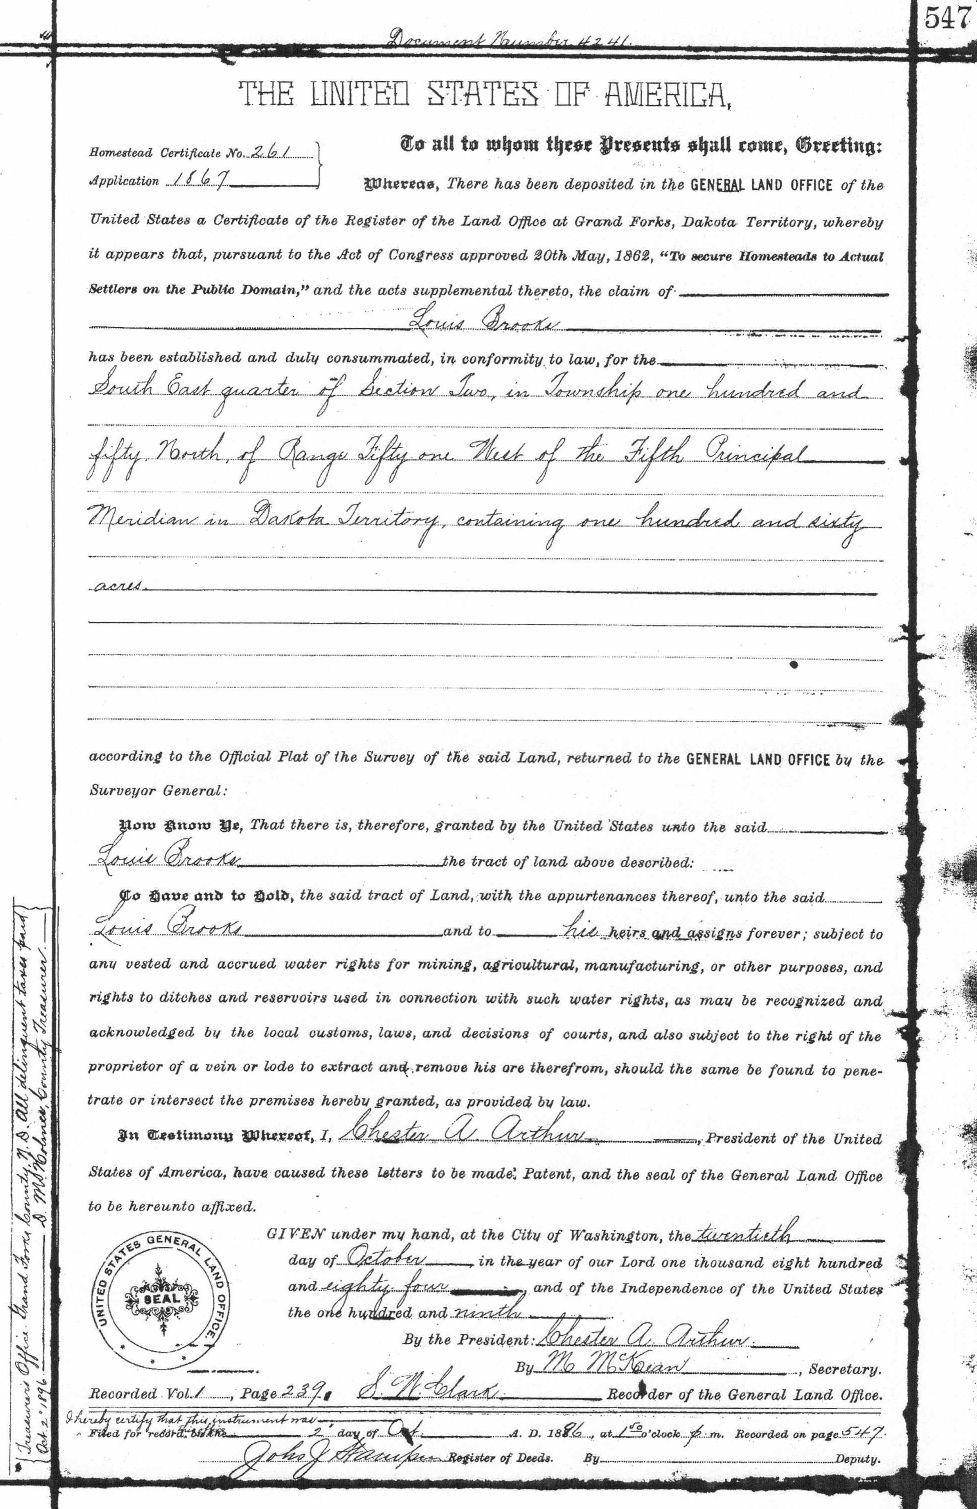 547
Document Number 4241.
THE UNITED STATES OF AMERICA,
Homestead Certificate No. 261
Application 1867
To all to whom these Presents shall come, Greeting:
Whereas, There has been deposited in the GENERAL LAND OFFICE of the
United States a Certificate of the Register of the Land Office at Grand Forks, Dakota Territory, whereby
it appears that, pursuant to the Act of Congress approved 20th May, 1862, “To secure Homesteads to Actual
Settlers on the Public Domain,” and the acts supplemental thereto, the claim of
Louis Brooks
has been established and duly consummated, in conformity to law, for the
South East quarter of Section Two, in Township one hundred and
fifty, North, of Range Fifty one West of the Fifth Principal
Meridian in Dakota Territory, containing one hundred and sixty
acres.
according to the Official Plat of the Survey of the said Land, returned to the GENERAL LAND OFFICE by the
Surveyor General:
Now Know Ye, That there is, therefore, granted by the United States unto the said
Louis Brooks the tract of land above described:
To Have and to Hold, the said tract of Land, with the appurtenances thereof, unto the said
Louis Brooks and to his heirs and assigns forever; subject to
any vested and accrued water rights for mining, agricultural, manufacturing, or other purposes, and
rights to ditches and reservoirs used in connection with such water rights, as may be recognized and
acknowledged by the local customs, laws, and decisions of courts, and also subject to the right of the
proprietor of a vein or lode to extract and remove his ore therefrom, should the same be found to pene-
trate or intersect the premises hereby granted, as provided by law.
In Testimony Whereof, I, Chester A Arthur, President of the United
States of America, have caused these letters to be made Patent, and the seal of the General Land Office
to be hereunto affixed.
GIVEN under my hand, at the City of Washington, the twentieth
day of October, in the year of our Lord one thousand eight hundred
and eighty four, and of the Independence of the United States
the one hundred and ninth
By the President: Chester A. Arthur.
By M McKean, Secretary.
UNITED STATES GENERAL LAND OFFICE.
SEAL
Recorded Vol. 1, Page 239. S. W. Clark Recorder of the General Land Office.
I hereby certify that this instrument was
Filed for record 2 day of Oct. A. D. 1896, at 1 o'clock p. m. Recorded on page 547.
John J Register of Deeds. By Deputy.
Treasurers Office Grand Forks County, N. D. All delinquent taxes paid
Oct. 2" 1896 D. M. Holmes, County Treasurer.